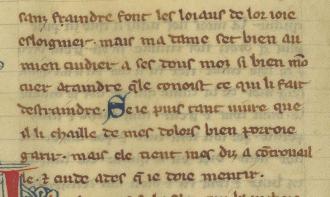 sanz fraindre font les loiaus de lor ioie
esloignier. mais ma dame set bien au
mien cuidier a ses dous mos si bien mō
cuer ataindre qͥle conoist ce qui li fait
destraindre. Se ie puis tant uiure que
il li chaille de mes dolors bien porroie
garir. mais ele tient mes dis a cōtrouail
le. ⁊ cuide ades q̄ ie doie mentir.